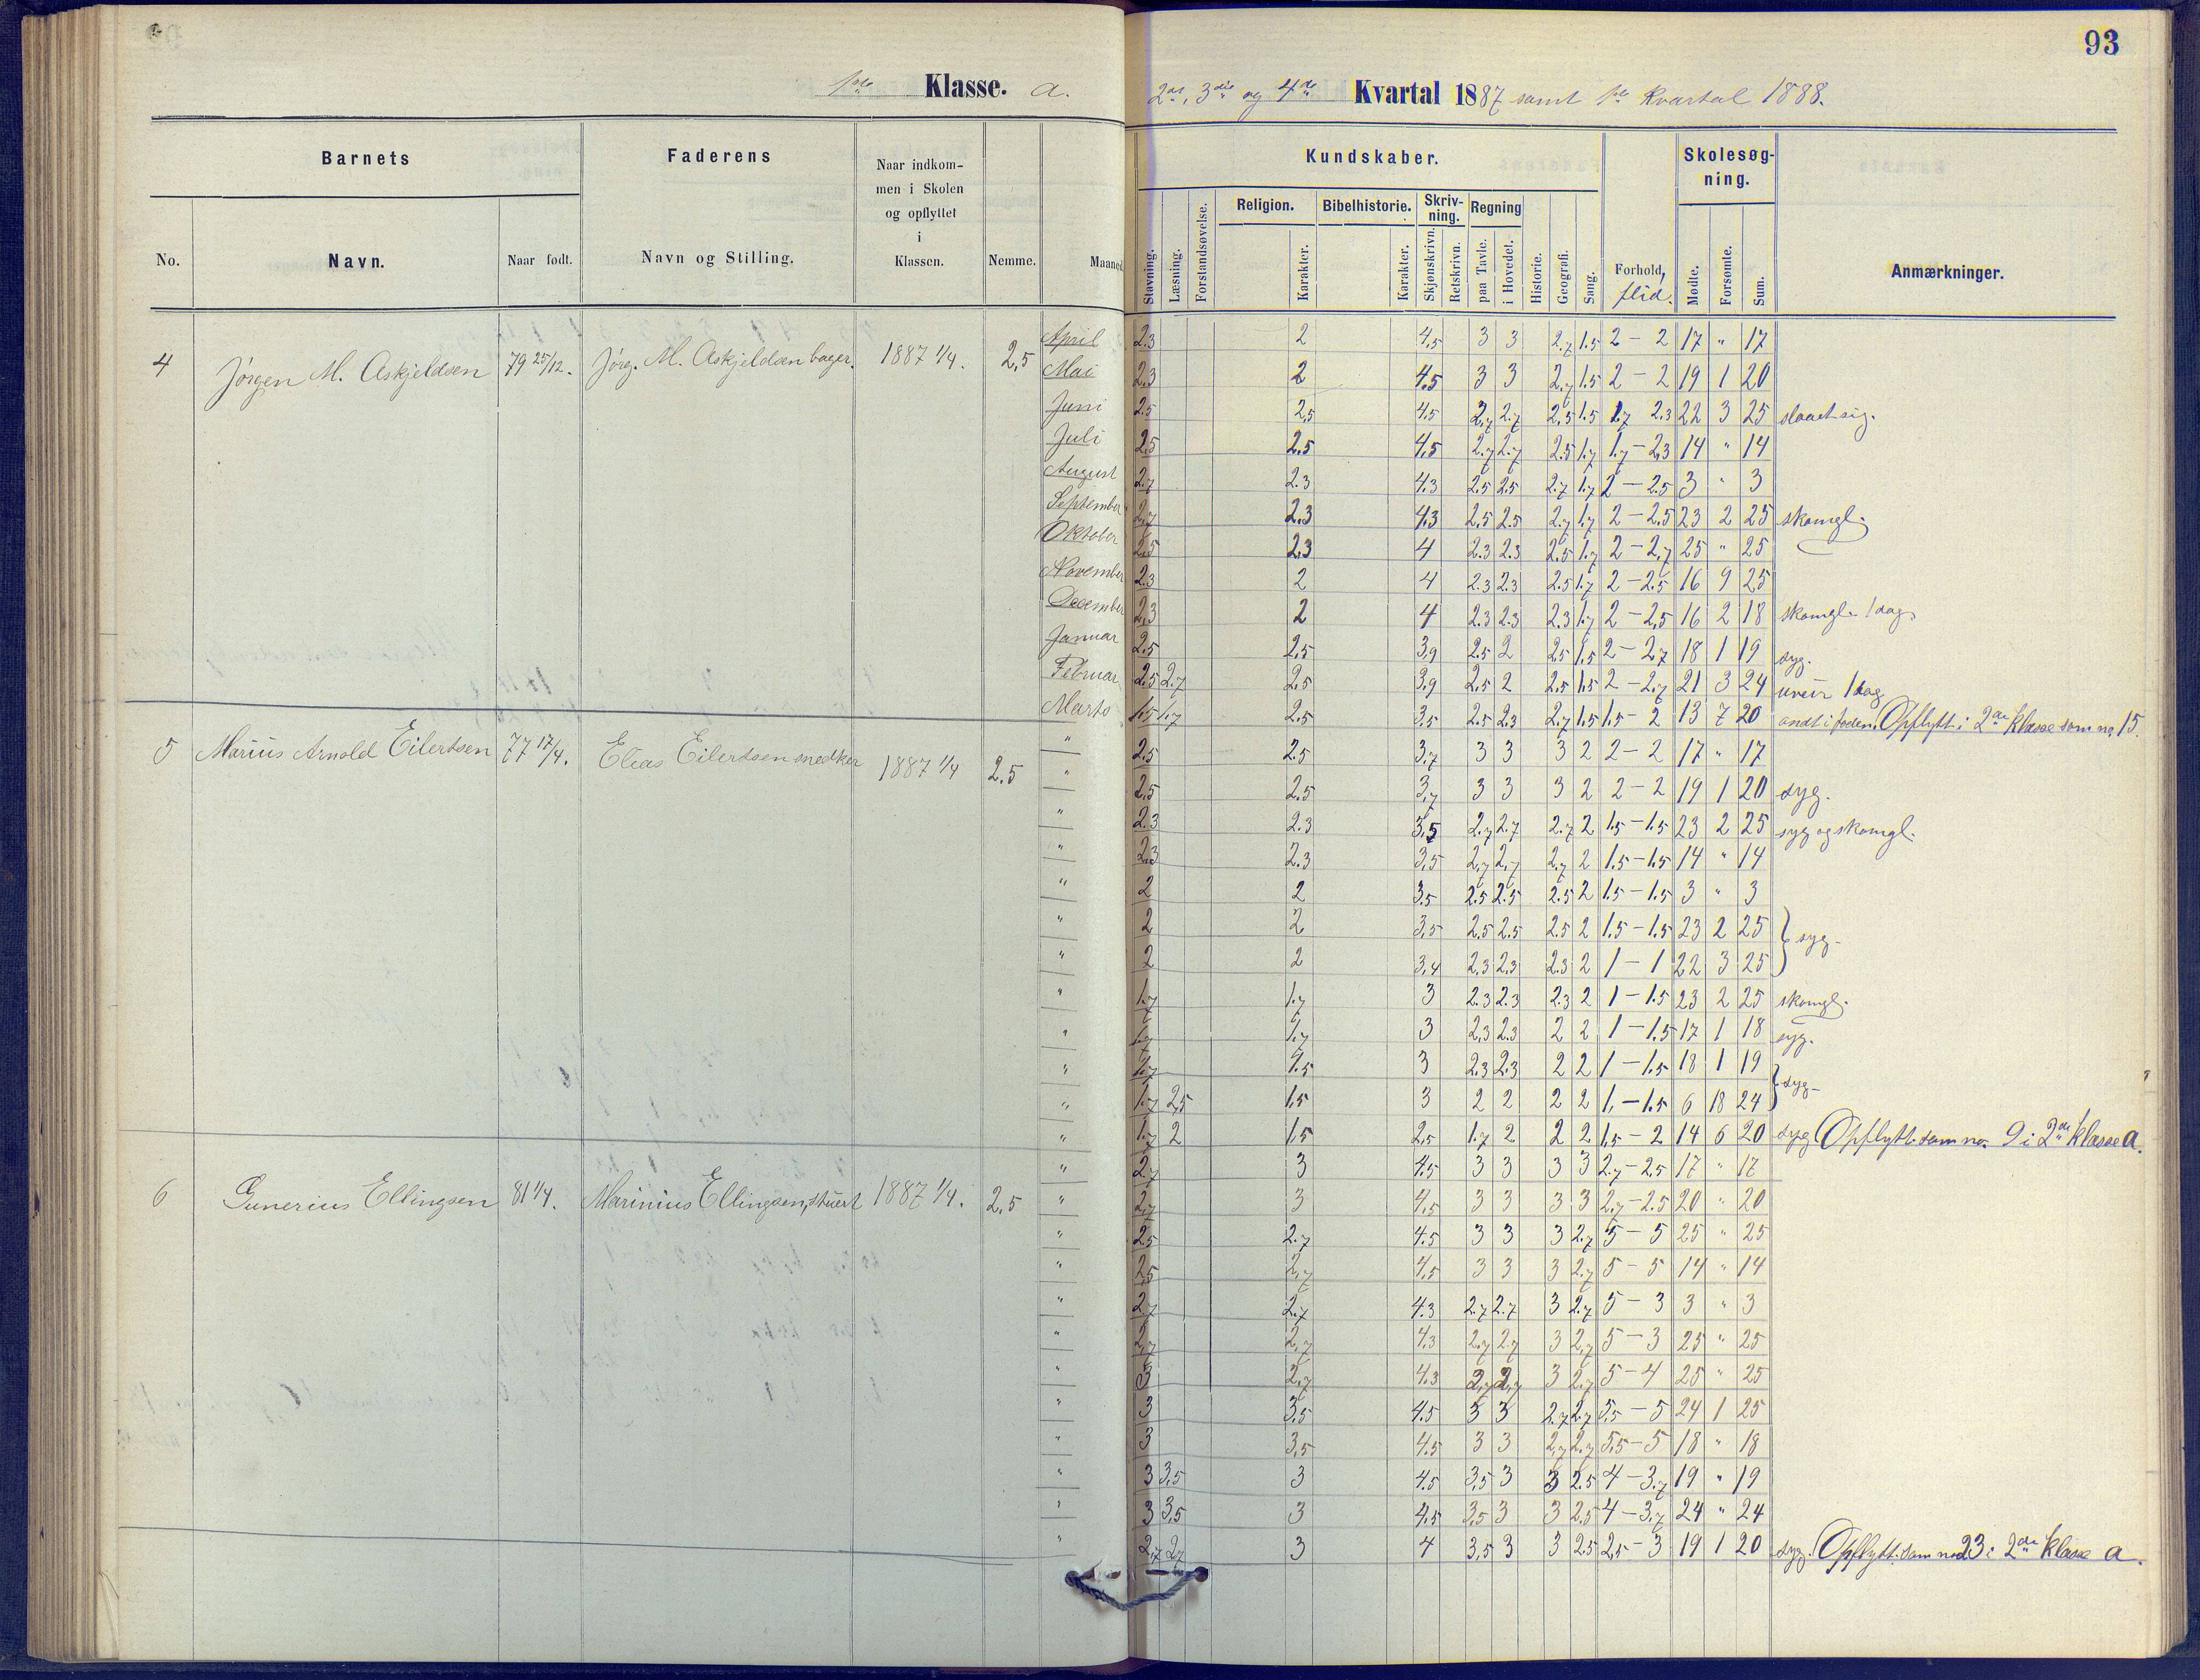 93
1ste Klasse. a. 2det, 3die og 4de Kvartal 1887 samt 1ste Kvartal 1888.
Barnets Faderens Naar indkom- men i Skolen og opflyttet i Klassen. Nemme. Maaned Kundskaber. Forhold, flid. Skolesøg- ning. Anmærkninger.
No. Navn. Naar født. Navn og Stilling. Stavning. Læsning. Forstandsøvelse. Religion. Karakter. Bibelhistorie. Karakter. Skriv- ning. Skjønskrivn. Retskrivn. Regning paa Tavle. i Hovedet. Historie. Geografi. Sang. Mødte. Forsømte. Sum.
4 Jørgen M. Askjeldsen 79 25/12. Jørg. M. Askjeldsen bager. 1887 1/4. 2,5
April 2.3 2 4,5 3 3 2.7 1.5 2 – 2 17 " 17
Mai 2.3 2 4.5 3 3 2.7 1.5 2 – 2 19 1 20
Juni 2.5 2,5 4.5 2,7 2.7 2,5 1.5 1.7 2.3 22 3 25 slaaet sig.
Juli 2.5 2.5 4,5 2.7 2.7 2.5 1.7 1.7 – 2,3 14 " 14
August 2.7 2.3 4.3 2.5 2.5 2.7 1.7 2 – 2.5 3 " 3
September 2,7 2.3 4,3 2,5 2.5 2.7 1.7 2 – 2.5 23 2 25 skomgl.
Oktober 2.5 2,3 4 2.3 2.3 2.5 1.7 2 – 2,7 25 " 25
November 2.3 2 4 2.3 2.3 2.5 1.7 2 – 2.5 16 9 25
December 2,3 2 4 2.3 2.3 2.3 1.7 2 – 2,5 16 2 18 skomgl. 1 dag.
Januar 2.5 2,5 3,9 2.5 2 2.5 1,5 2 – 2,7 18 1 19 syg.
Februar 2.5 2.7 2,5 3,9 2,5 2 2.5 1.5 2 – 2,7 21 3 24 uveir 1 dag
Marts 1.5 1.7 2.5 3,5 2.5 2.3 2.7 1.5 1.5 – 2 13 7 20 ondt i foden. Opflytt. i 2den Klasse som no. 15.
5 Marius Arnold Eilertsen 77 17/4. Elias Eilertsen snedker 1887 1/4 2.5
" 2.5 2.5 3,7 3 3 3 2 2 – 2 17 " 17
" 2,5 2.5 3,7 3 3 3 2 2 – 2 19 1 20 syg.
" 2.3 2.3 3,5 2.7 2.7 2.7 2 1.5 – 1.5 23 2 25 syg og skomgl.
" 2.3 2.3 3,5 2,7 2,7 2.7 2 1.5 – 1.5 14 " 14
" 2 2 3,5 2.5 2.5 2.5 2 1.5 – 1.5 3 " 3
" 2 2 3,5 2.5 2.5 2.5 2 1.5 – 1.5 23 2 25 } syg
" 2 2 3,4 2,3 2,3 2.3 2 1 – 1 22 3 25
" 1.7 1.7 3 2.3 2.3 2.3 2 1 – 1.5 23 2 25 skomgl.
" 1.7 1.7 3 2,3 2.3 2 2 1 – 1.5 17 1 18 syg.
" 1.7 1.5 3 2.3 2.3 2 2 1 – 1.5 18 1 19 } syg
" 1.7 2,5 1,5 3 2 2 2 2 1. – 1.5 6 18 24
" 1.7 2 1.5 2,5 1.7 2 2 2 1,5 – 2 14 6 20 syg Opflytt. som no. 9 i 2den klasse a.
6 Gunerius Ellingsen 81 1/4. Marinius Ellingsen, stuert 1887 1/4. 2,5
" 2.7 3 4.5 3 3 3 3 2.7 – 2.5 17 " 17
" 2.7 3 4,5 3 3 3 3 2.7 – 2.5 20 " 20
" 2.5 2.7 4.5 3 3 3 2.7 5 – 5 25 " 25
" 2,5 2,7 4,5 3 3 3 2.7 5 – 5 14 " 14
" 2.7 2.7 4.3 2.7 2.7 3 2.7 5 – 3 3 " 3
" 2,7 2,7 4.3 2.7 2.7 3 2,7 5 – 3 25 " 25
" 3 2,7 4.3 2,7 2,7 3 2.7 5 – 4 25 " 25
" 3 3.5 4.5 3 3 2.7 2.7 5,5 – 5 24 1 25
" 3 3,5 4.5 3 3 2,7 2.7 5,5 – 5 18 " 18
" 3 3,5 3 4.5 3,5 3 3 2.5 4 – 3.7 19 " 19
" 3 3,5 3 4.5 3,5 3 3 2.5 4 – 3,7 24 " 24
" 2,7 2,7 3 4 3,5 3 3 2.5 2,5 – 3 19 1 20 syg. Opflytt. som no 23 i 2den klasse a.